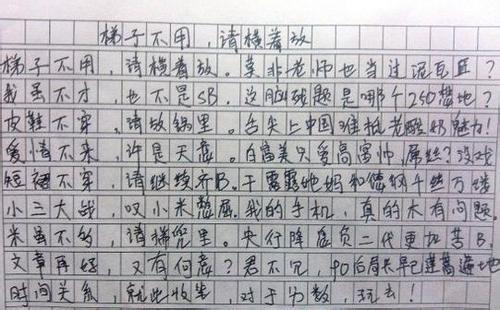 梯子不用，请横着放
梯子不用，请横着放。莫非老师也当过泥瓦匠？
我虽不才，也不是SB。这脑残题是哪个250想地？
皮鞋不穿，请放锅里。舌尖上中国难抵老酸奶魅力！
爱情不来，许是天意。白富美只爱高富帅，屌丝？没戏
短裙不穿，请继续齐B。干露露她妈和德纲千丝万缕
小三大战，叹小米憋屈。我的手机，真的木有问题
米虽不多，请揣兜里。央行降息负二代更加苦B
文章再好，又有何意？君不见，90后局长早已遍地
时间关系，就此收笔，对于分数，玩去！